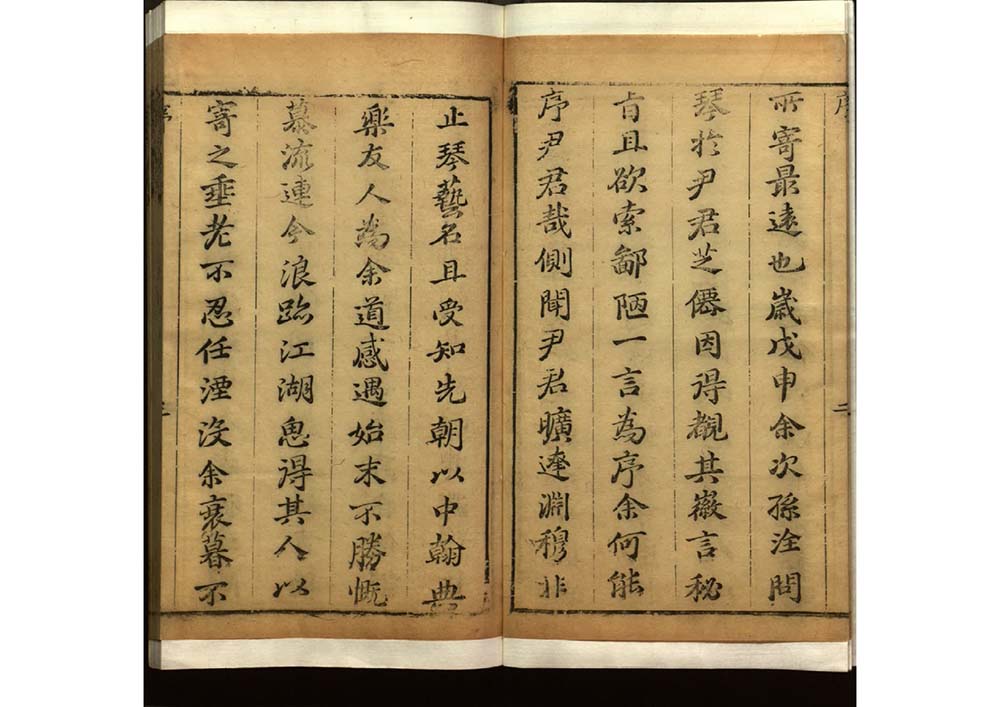 序 二
所寄最遠也歲戊申余次孫洤問
琴於尹君芝僊因得覩其微言秘
旨且欲索鄙陋一言為序余何能
序尹君哉側聞尹君曠達淵穆非
止琴藝名且受知先朝以中翰典
樂友人為余道感遇始末不勝慨
慕流連今浪跡江湖思得其人以
寄之垂老不忍任湮沒余衰暮不
序 三